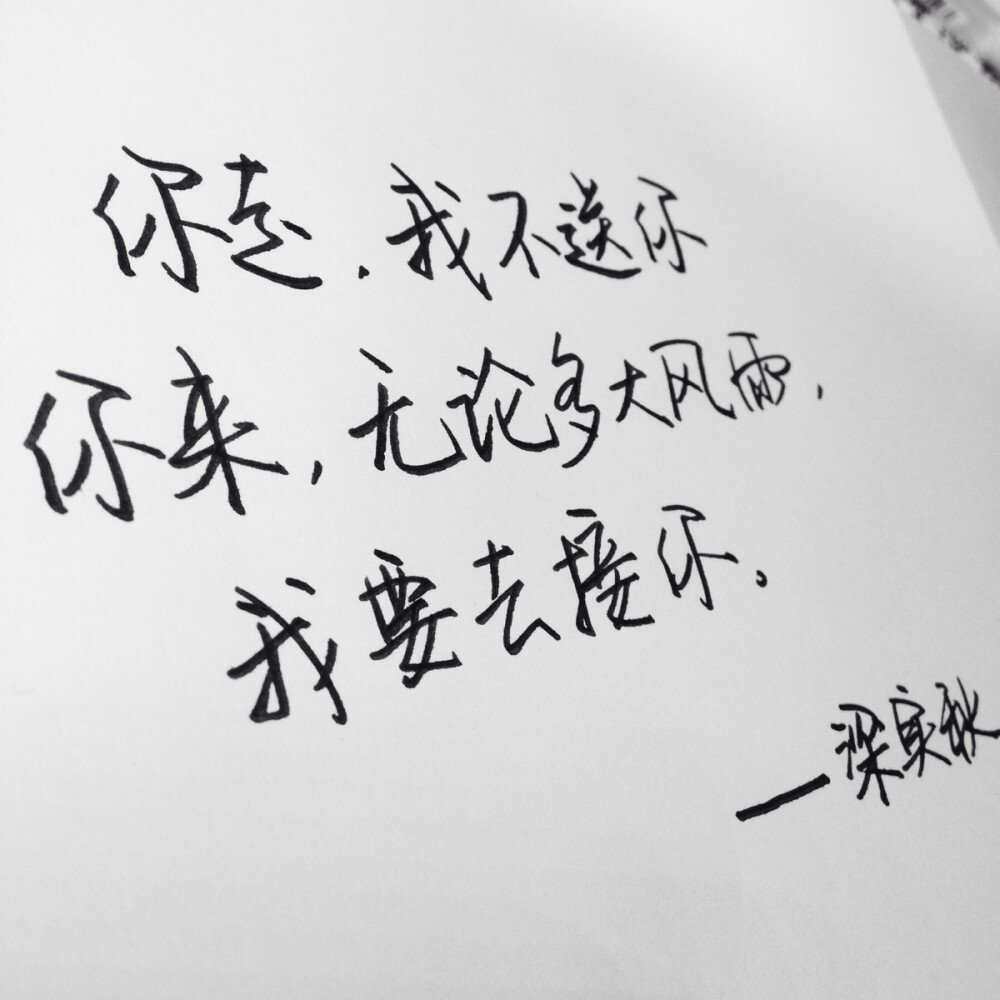 你走，我不送你
你来，无论多大风雨，
我要去接你。
——深实秋